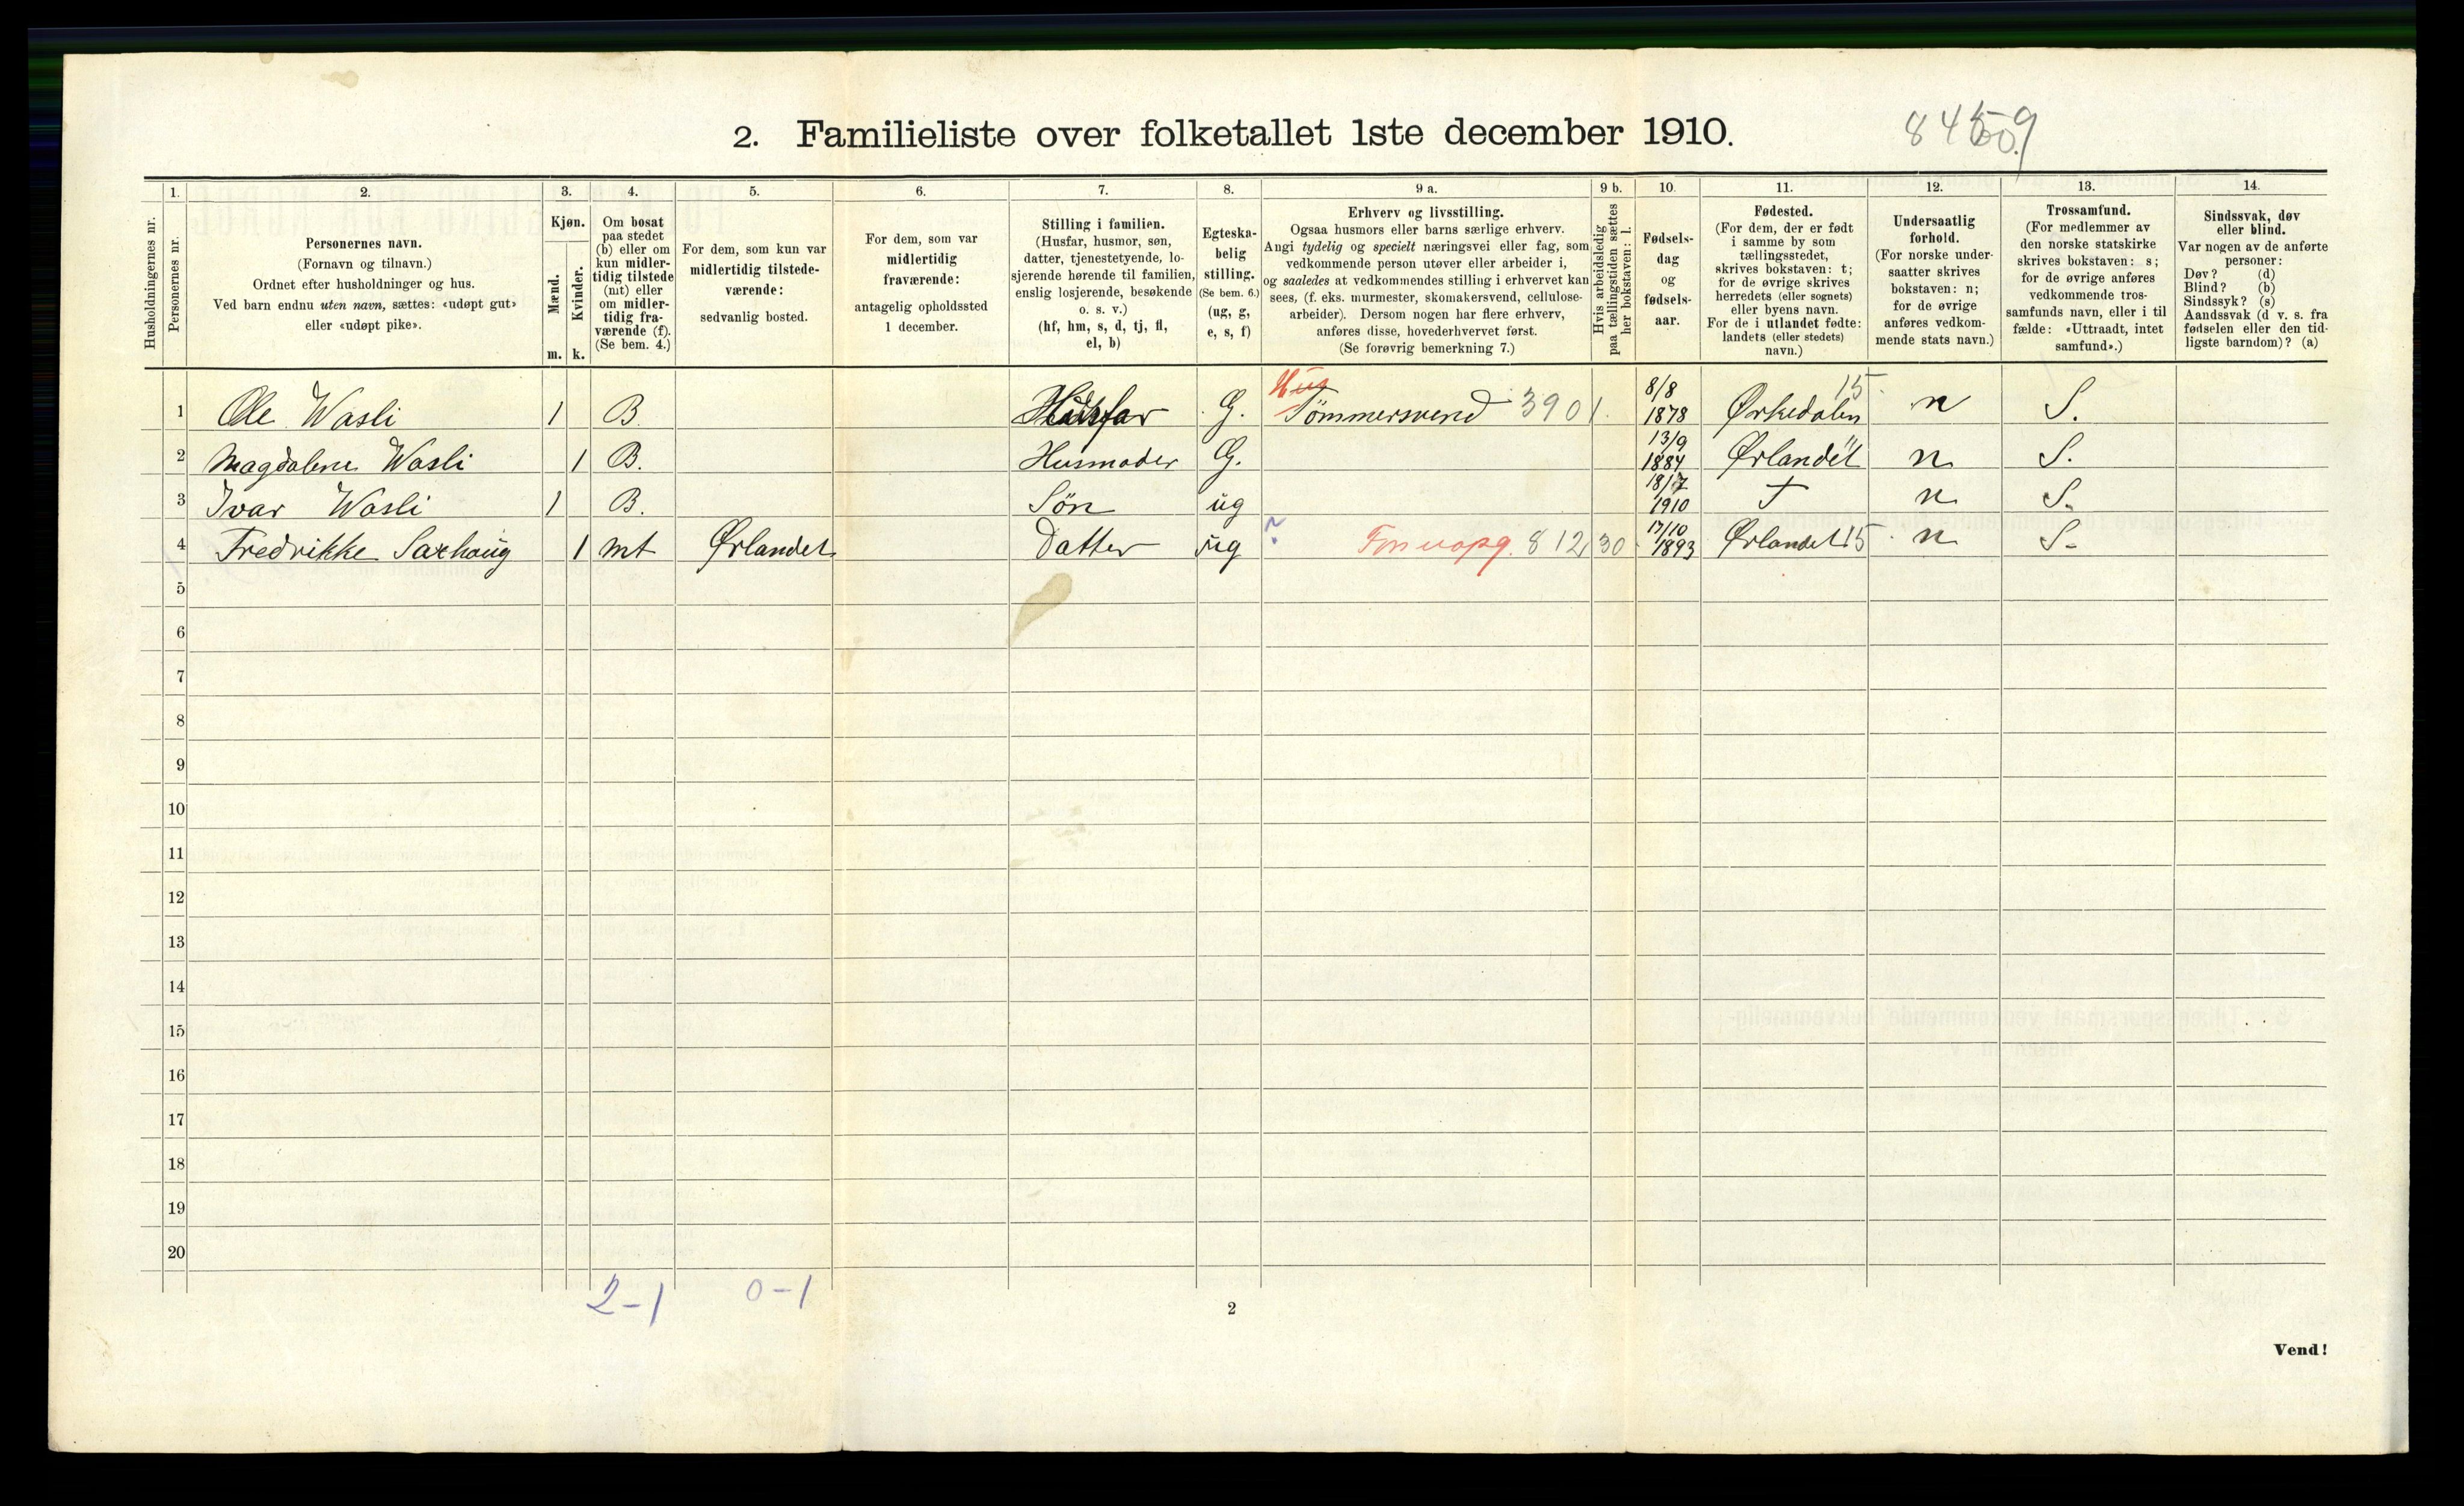 2. Familieliste over folketallet 1ste december 1910.
Husholdningernes nr.
1. Personernes nr.
2. Personernes navn.
(Fornavn og tilnavn.)
Ordnet efter husholdninger og hus.
Ved barn endnu uten navn, sættes: «udøpt gut»
eller «udøpt pike».
3. Kjøn.
Mænd. m.
Kvinder. k.
4. Om bosat
paa stedet
(b) eller om
kun midler-
tidig tilstede
(mt) eller
om midler-
tidig fra-
værende (f).
(Se bem. 4.)
5. For dem, som kun var
midlertidig tilstede-
værende:
sedvanlig bosted.
6. For dem, som var
midlertidig
fraværende:
antagelig opholdssted
1 december.
7. Stilling i familien.
(Husfar, husmor, søn,
datter, tjenestetyende, lo-
sjerende hørende til familien,
enslig losjerende, besøkende
o. s. v.)
(hf, hm, s, d, tj, fl,
el, b)
8. Egteska-
belig
stilling.
(Se bem. 6.)
(ug, g,
e, s, f)
9 a. Erhverv og livsstilling.
Ogsaa husmors eller barns særlige erhverv.
Angi tydelig og specielt næringsvei eller fag, som
vedkommende person utøver eller arbeider i,
og saaledes at vedkommendes stilling i erhvervet kan
sees, (f. eks. murmester, skomakersvend, cellulose-
arbeider). Dersom nogen har flere erhverv,
anføres disse, hovederhvervet først.
(Se forøvrig bemerkning 7.)
9 b. Hvis arbeidsledig
paa tællingstiden sættes
her bokstaven: l.
10. Fødsels-
dag
og
fødsels-
aar.
11. Fødested.
(For dem, der er født
i samme by som
tællingsstedet,
skrives bokstaven: t;
for de øvrige skrives
herredets (eller sognets)
eller byens navn.
For de i utlandet fødte:
landets (eller stedets)
navn.)
12. Undersaatlig
forhold.
(For norske under-
saatter skrives
bokstaven: n;
for de øvrige
anføres vedkom-
mende stats navn.)
13. Trossamfund.
(For medlemmer av
den norske statskirke
skrives bokstaven: s;
for de øvrige anføres
vedkommende tros-
samfunds navn, eller i til
fælde: «Uttraadt, intet
samfund».)
14. Sindssvak, døv
eller blind.
Var nogen av de anførte
personer:
Døv? (d)
Blind? (b)
Sindssyk? (s)
Aandssvak (d v. s. fra
fødselen eller den tid-
ligste barndom)? (a)
1 Ole Wasli 1 B. Husfar G. Hus Tömmersvend 3901. 8/8 1878 Ørkedalen 15 n S.
2 Magdalene Wasli 1 B. Husmoder G. 13/9 1884 Ørlandet n S.
3 Ivar Wasli 1 B. Sön ug 18/7 1910 T n S.
4 Fredrikke Saxhaug 1 mt Ørlandet Datter ug 812 30 17/10 1893 Ørlandet 15 n S.
5
6
7
8
9
10
11
12
13
14
15
16
17
18
19
20
2-1 0-1
2
Vend!